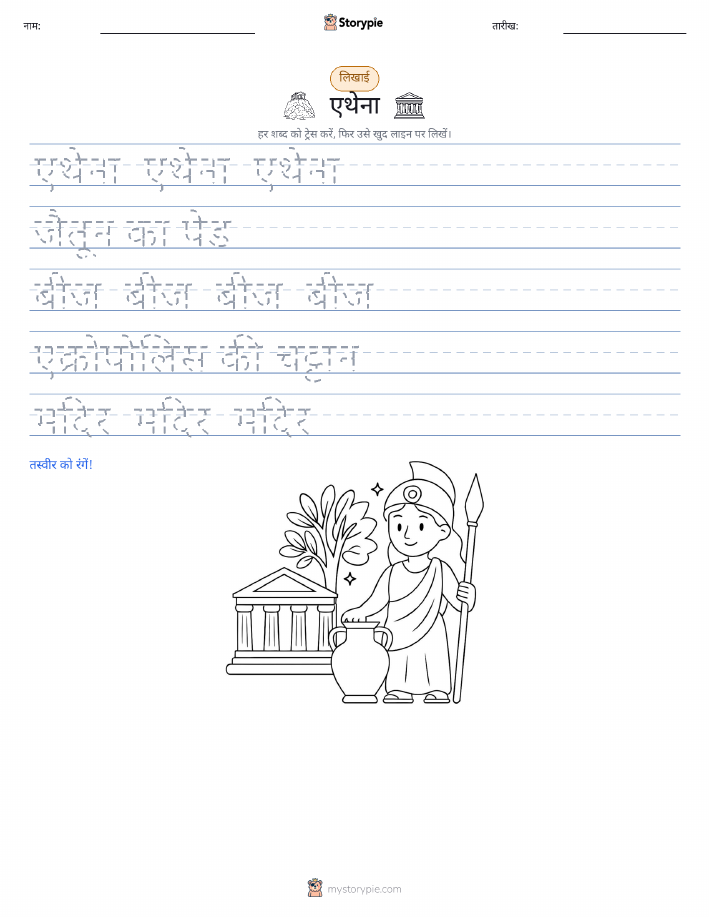 नाम: Storypie तारीख:
लिखाई
एथेना
हर शब्द को ट्रेस करें, फिर उसे खुद लाइन पर लिखें।
एथेना एथेना एथेना
जैतून का पेड
बीज बीज बीज बीज
एक्रोपोलिस की चट्टान
मंदिर मंदिर मंदिर
तस्वीर को रंगें!
mystorypie.com